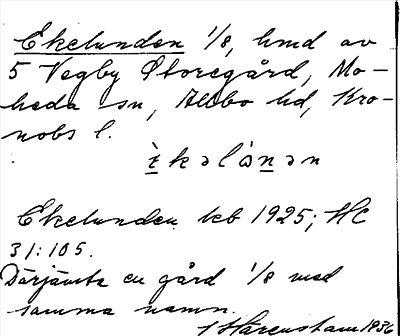 Ekelunden 1/8, hmd av
5 Vegby Storegård, Mo-
heda sn, Allbo hd, Kro-
nobs l.
èkəlɷ̀nən
Ekelunden kb 1925; HC
31:105.
Därjämte en gård 1/8 med
samma namn.
Hårenstam 1936